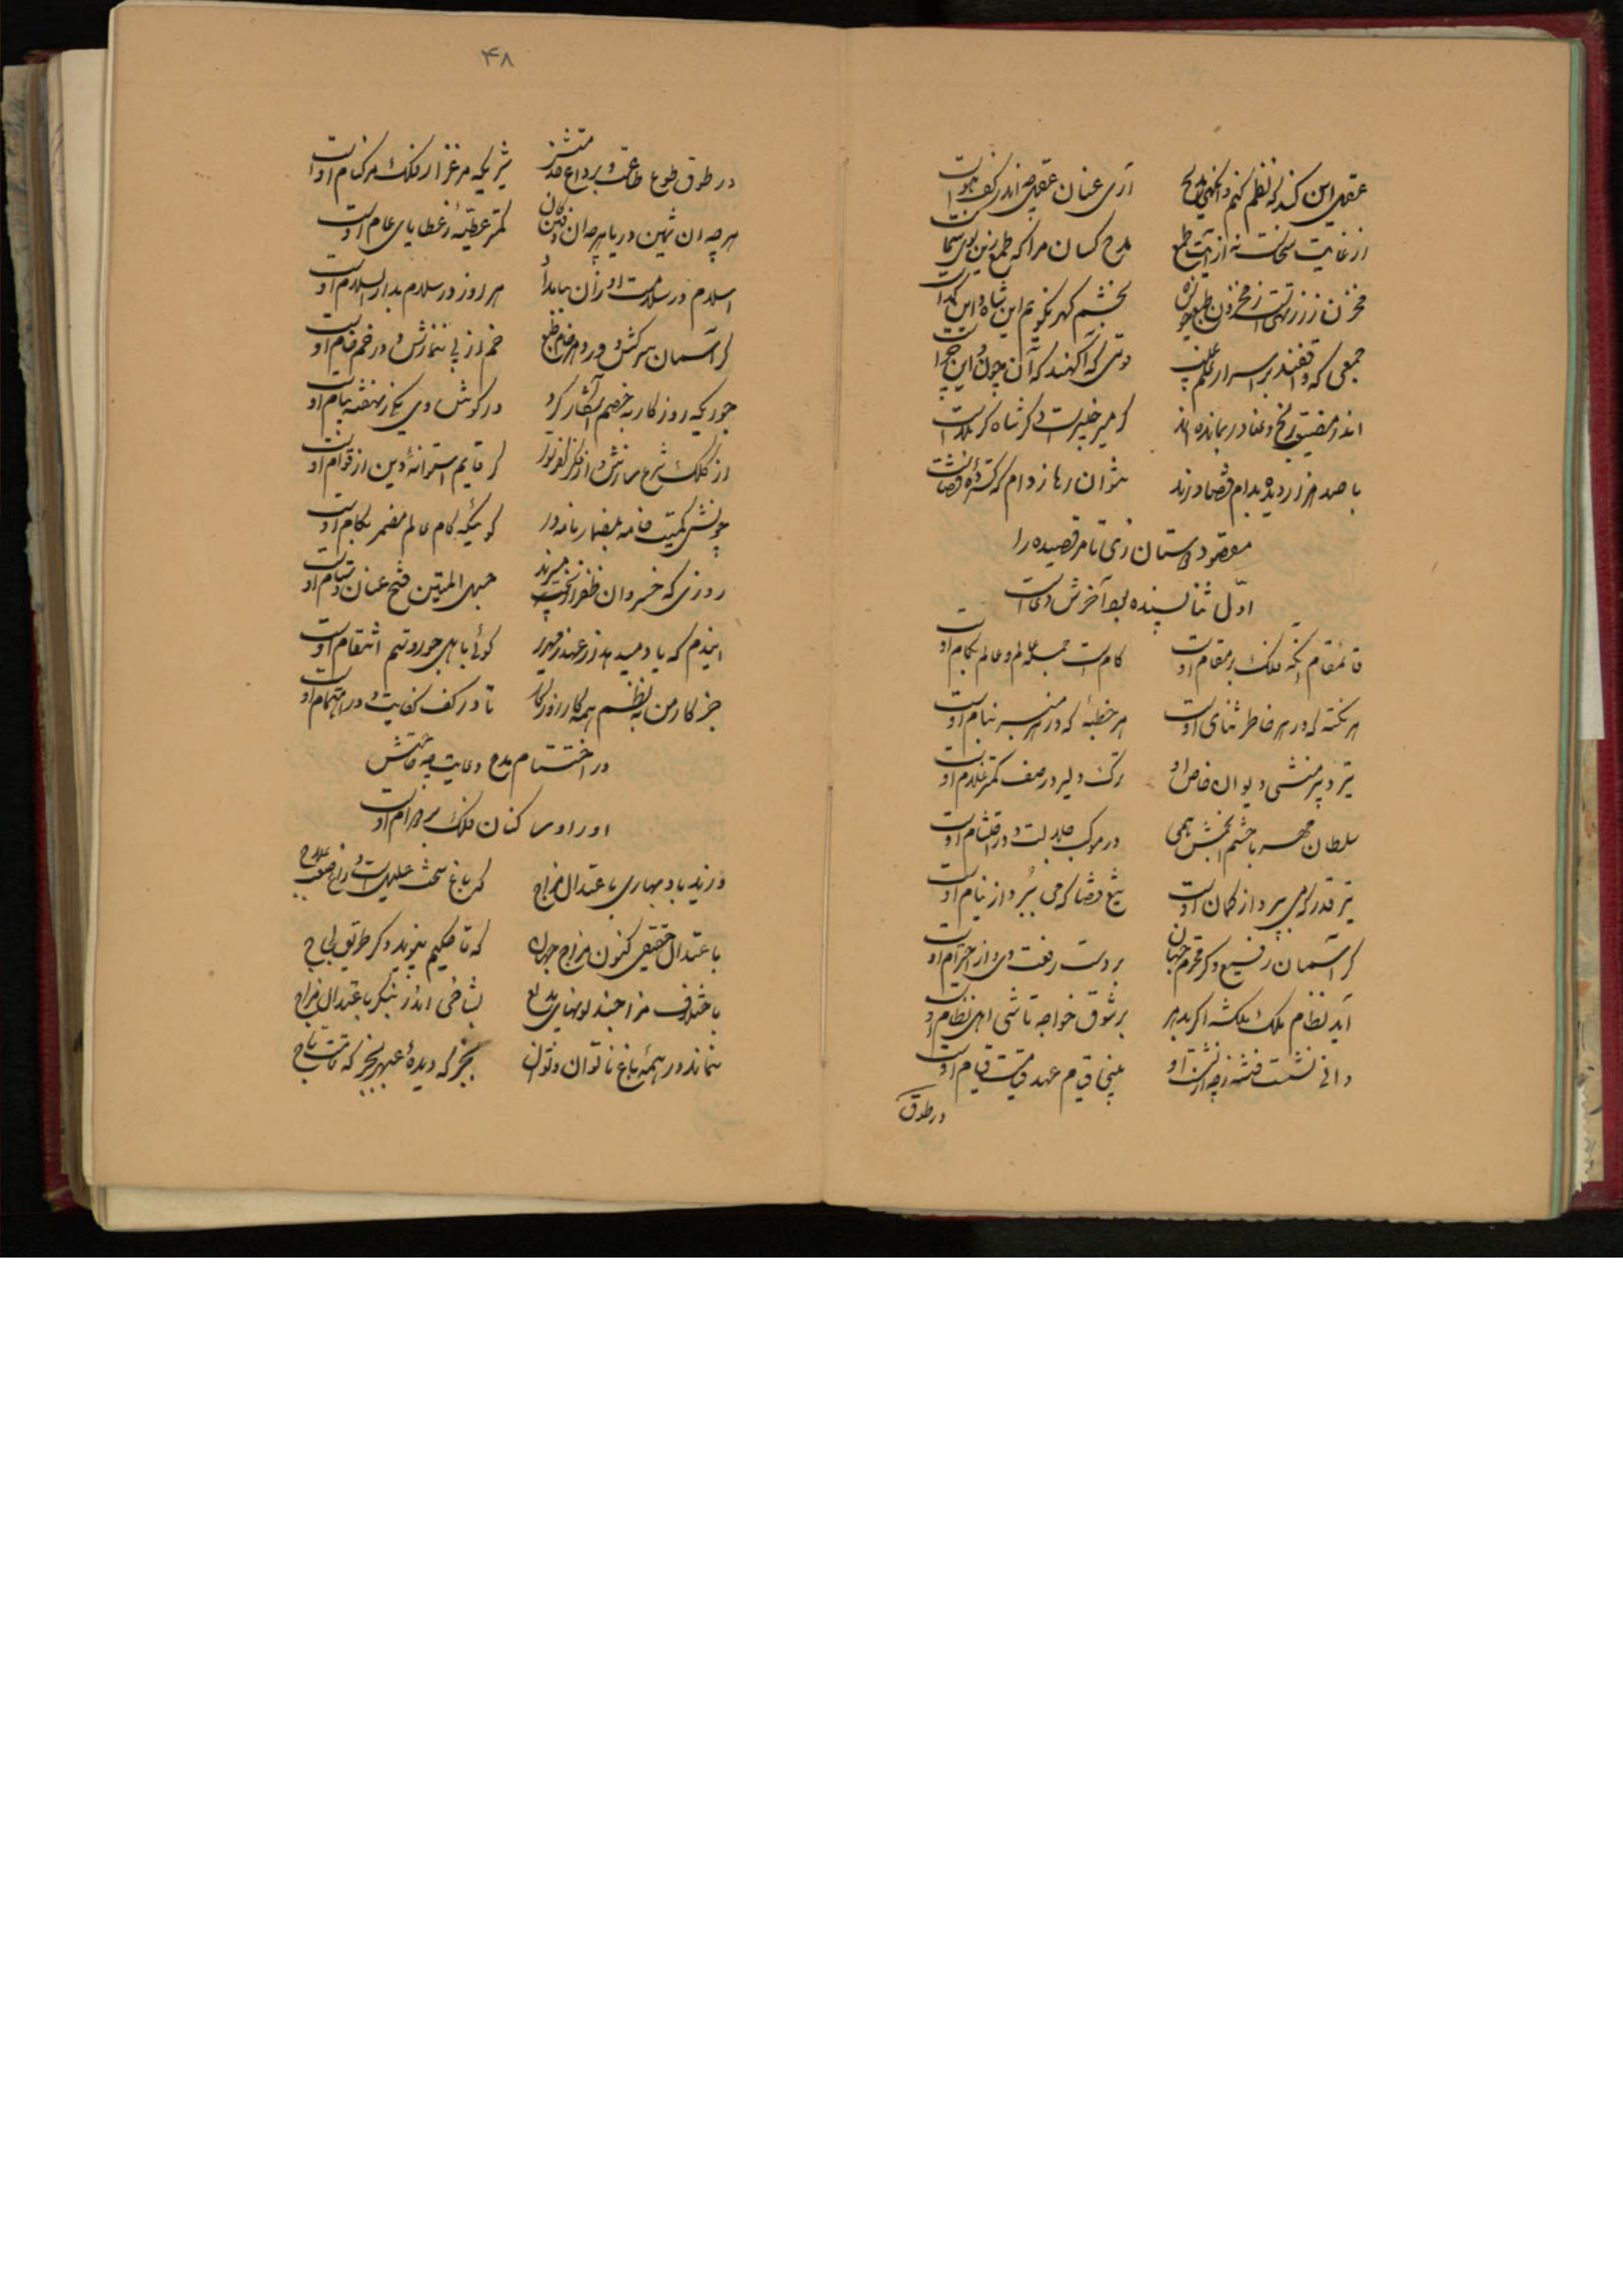 عقل این کند که نظم کنم وانگهی مدیح آری عنان عقل چه اندر کف هواست
از غایت سخاست نه از آیت طمع مدح کسان مرا که طمع زین بوی سخاست
مخزن ز زر تهی است ز مخزون طبع خود بخشم گهر نگویم این شاه و این گداست
جمعی که واقفند بر اسرار علم غیب دوتی که آگهند که آن چون و این چراست
اندر مضیق رنج و عنا در بمانده‌اند گر میر خیبر است و گر شاه کربلاست
با صد هزار دیده بدام قضا درند نتوان رها ز دام که گسترده قضاست
معقود داستان زنی تا مر قصیده را
اول ثنا پسنده بود آخرش دعاست
قائمقام آنکه فلک در مقام اوست کام است جمله عالم و عالم بکام اوست
هر نکته که در هر خاطر ثنای اوست هر خطبه که در هر منبر بنام اوست
تیر دبیر منشی دیوان خاص او ترک دلیر در صف کمتر غلام اوست
سلطان مهر با حشم انجمش همی در موکب جلالت و در احتشام اوست
تیر قدر که می بپرد از کمان اوست تیغ قضا که می ببرد از نیام اوست
گر آسمان رفیع و گر محترم جهان بر دست رفعت وی و از احترام اوست
آید نظام ملک ملکشه اگر بدهر بر شوق خواجه تاشی اهل نظام اوست
دانی نشست فتنه ز چه از نشست او بینی قیام عهد قیامت قیام اوست
در طوق
۴۸
در طوق طوع طاعت و بر داغ خدمتش شیری که مرغزار فلک مر کنام اوست
هر چه آن ثمین دریا هر چه آن دفین کان کمتر عطیهٔ ز عطایای عام اوست
اسلام در سلامت او زان بیابد هر روز در سلام بدار السلام اوست
گر آسمان سرکش و در دهر خام طبع خم از پی نمازش و در خم خام اوست
جوری که روزگار به خصم آشکار کرد در گوش وی یکی ز نهفته پیام اوست
از کلک شرع سازش و از فکر کفر توز گر قایم استوانهٔ دین از قوام اوست
چونش کمیت خامه بمضمار نامه در گوئیکه کام عالم مضمر بکام اوست
روزی که خسروان ظفر از بخت میبرند حبل المتین فتح عنان و ستام اوست
اینم که یاد میدهد از عهد قهر گوئی با اهل جور و ستم انتقام اوست
جز کار من به نظم همه کار روزگار تا در کف کفایت و در اهتمام اوست
در اختتام مدح دعایت چه حاجتش
اوراد ساکنان فلک بر دوام اوست
وزید باد بهاری با عتدال مزاج که باغ سخت علیل است و زاغ صعب علاج
باعتدال حقیقی کنون مزاج جهان که تا حکیم نپوید دگر طریق لجاج
باختلاف مزاج چند لونهای بدیع بشاخی اندر بنگر باعتدال مزاج
نماند در همهٔ باغ ناتوان و نوان بجز که دیدهٔ عبهر بجز که قامت تاج